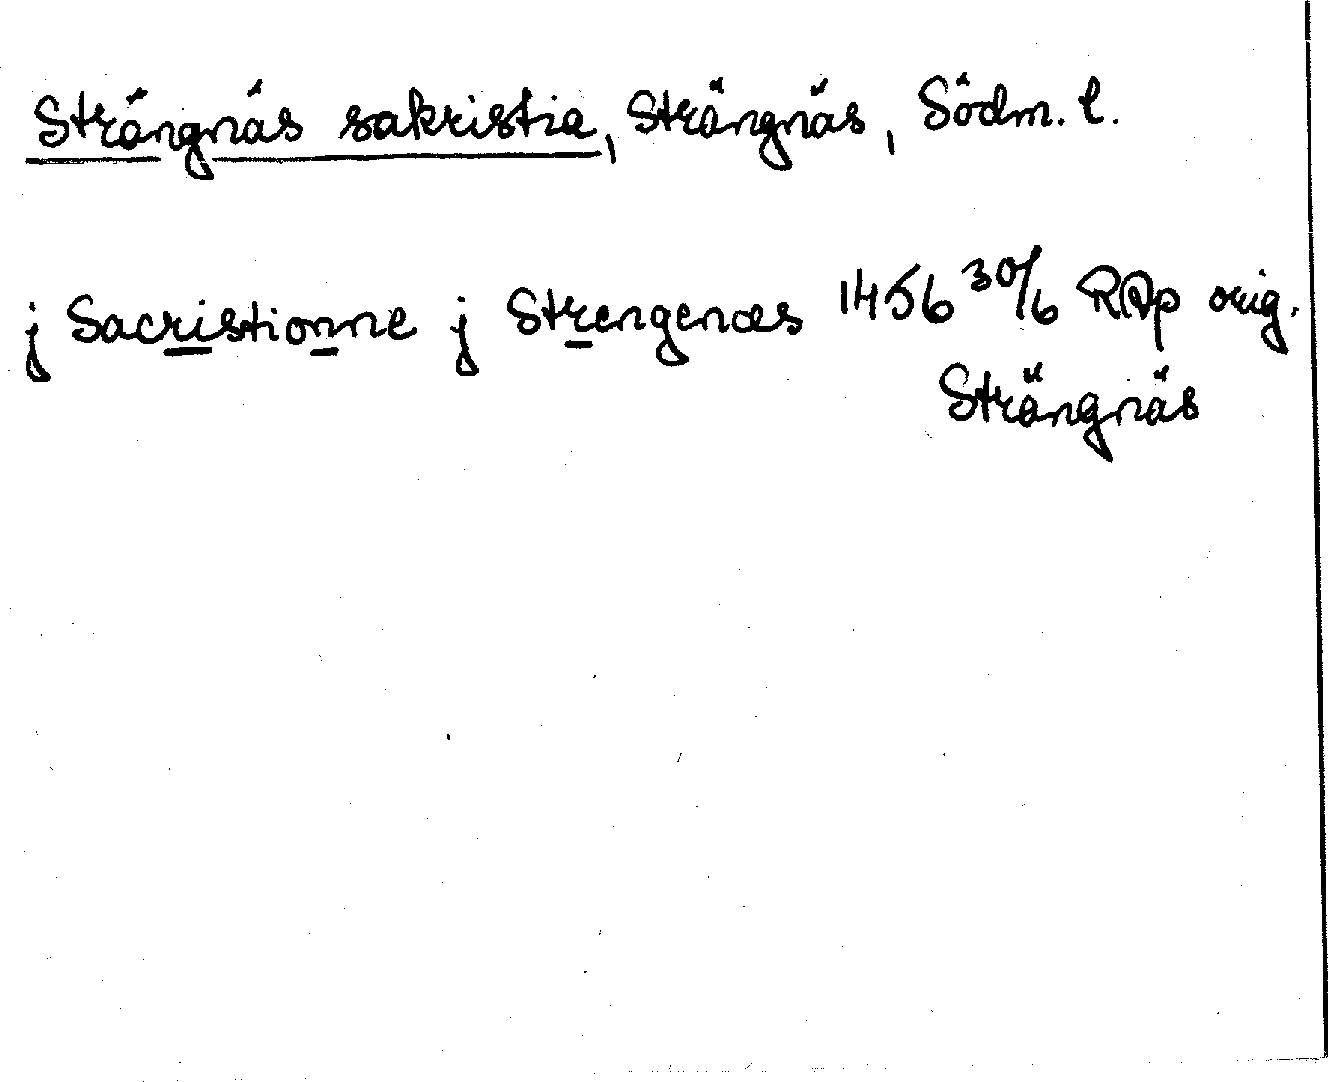 Strängnäs sakristia, Strängnäs, Södm. l.
j Sacristionne j Strengenæs 1456 30/6 RAp orig.
Strängnäs